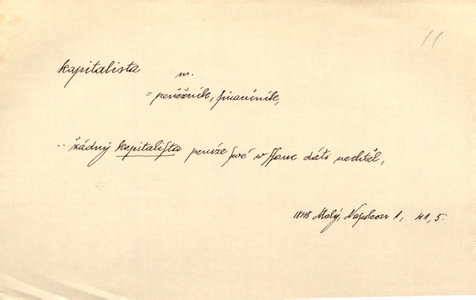 kapitalista m.
= peněžník, finančník,
.. žádný kapitalista peníze swé w dáti nechtěl,
1848 Malý, Napoleon 1, 41, 5.